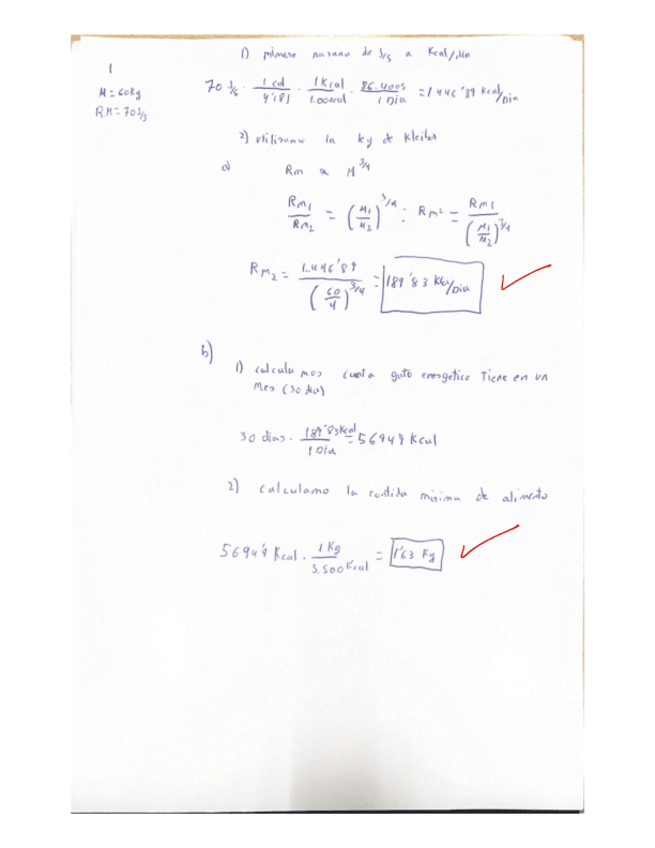 1
M = 60 Kg
R.M = 70 J/s
1) primero pasamo de J/s a Kcal/dia
70 J/s · 1 cal / 4'181 · 1 Kcal / 1.000 cal · 86.400 s / 1 Dia = 1446'89 Kcal/Dia
2) utilizamo la ley de Kleiber
a) Rm ∝ M^3/4
RM1 / RM2 = (M1 / M2)^3/4 : RM2 = RM1 / (M1 / M2)^3/4
RM2 = 1.446'89 / (60 / 4)^3/4 = 189'83 Kcal/Dia
b)
1) calculamos cuanto gasto energetico Tiene en un
Mes (30 dias)
30 dias · 189'83 Kcal / 1 Dia = 5694'9 Kcal
2) calculamo la cantida minima de alimento
5694'9 Kcal · 1 Kg / 3.500 Kcal = 1'63 Kg